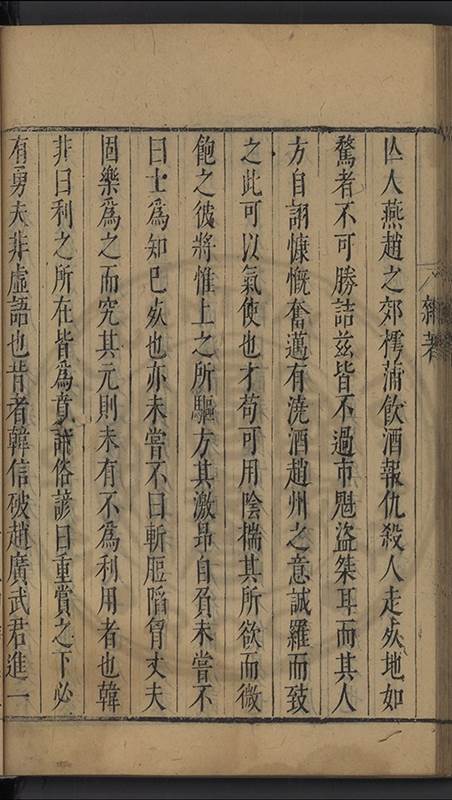 亾人燕趙之郊樗蒲飲酒報仇殺人走死地如
騖者不可勝詰茲皆不過市魁盜桀耳而其人
方自詡慷慨奮邁有澆酒趙州之意誠羅而致
之此可以氣使也才苟可用陰揣其所欲而微
飽之彼將惟上之所驅方其激昂自負未嘗不
曰士為知己死也亦未嘗不曰斬脰陷胷丈夫
固樂為之而究其元則未有不為利用者也韓
非曰利之所在皆為賁諸俗諺曰重賞之下必
有勇夫非虛語也昔者韓信破趙廣武君進一